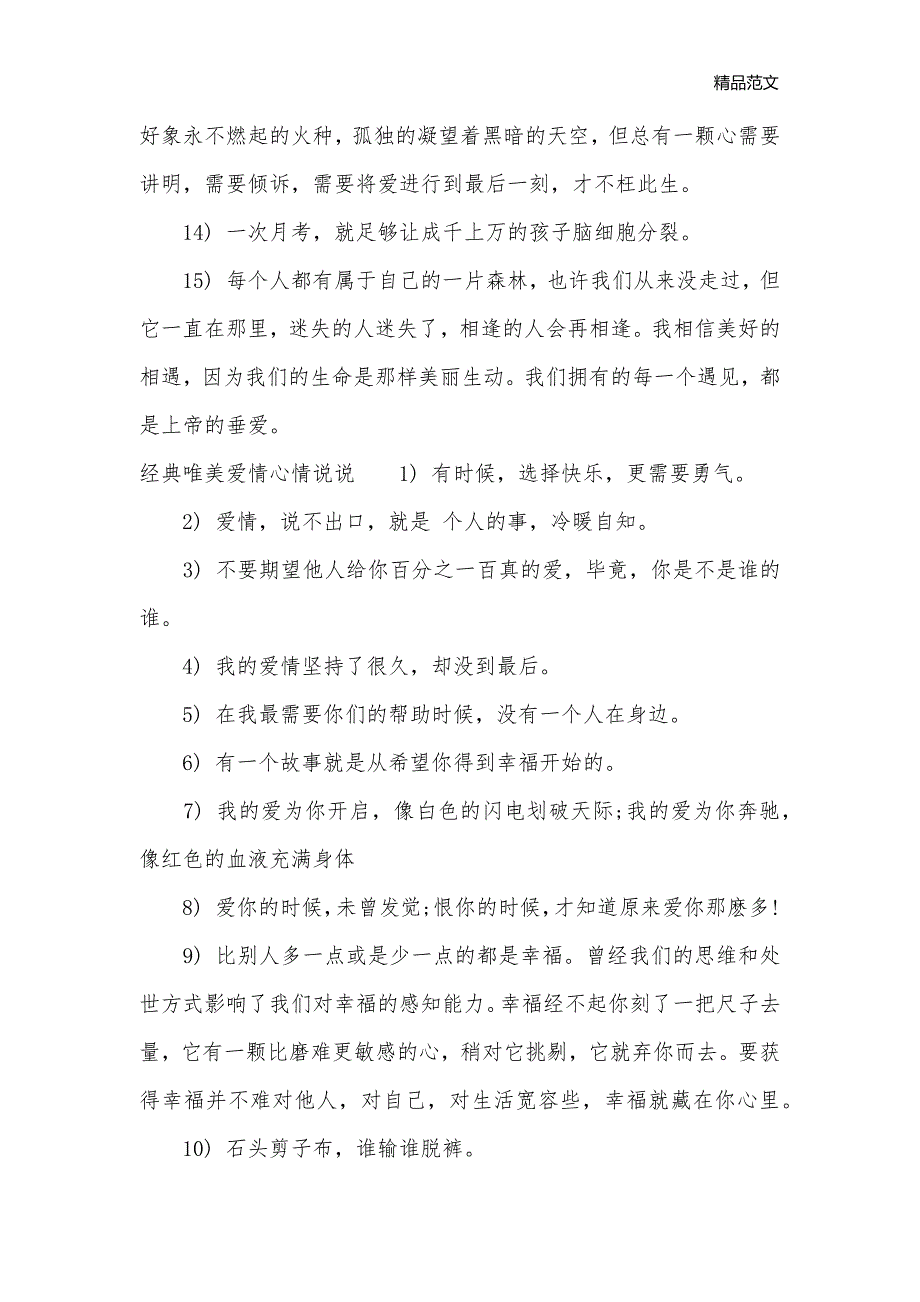 精品范文
好象永不燃起的火种，孤独的凝望着黑暗的天空，但总有一颗心需要
讲明，需要倾诉，需要将爱进行到最后一刻，才不枉此生。
14) 一次月考，就足够让成千上万的孩子脑细胞分裂。
15) 每个人都有属于自己的一片森林，也许我们从来没走过，但
它一直在那里，迷失的人迷失了，相逢的人会再相逢。我相信美好的
相遇，因为我们的生命是那样美丽生动。我们拥有的每一个遇见，都
是上帝的垂爱。
经典唯美爱情心情说说 1) 有时候，选择快乐，更需要勇气。
2) 爱情，说不出口，就是 个人的事，冷暖自知。
3) 不要期望他人给你百分之一百真的爱，毕竟，你是不是谁的
谁。
4) 我的爱情坚持了很久，却没到最后。
5) 在我最需要你们的帮助时候，没有一个人在身边。
6) 有一个故事就是从希望你得到幸福开始的。
7) 我的爱为你开启，像白色的闪电划破天际;我的爱为你奔驰，
像红色的血液充满身体
8) 爱你的时候,未曾发觉;恨你的时候,才知道原来爱你那麽多!
9) 比别人多一点或是少一点的都是幸福。曾经我们的思维和处
世方式影响了我们对幸福的感知能力。幸福经不起你刻了一把尺子去
量，它有一颗比磨难更敏感的心，稍对它挑剔，它就弃你而去。要获
得幸福并不难对他人，对自己，对生活宽容些，幸福就藏在你心里。
10) 石头剪子布，谁输谁脱裤。